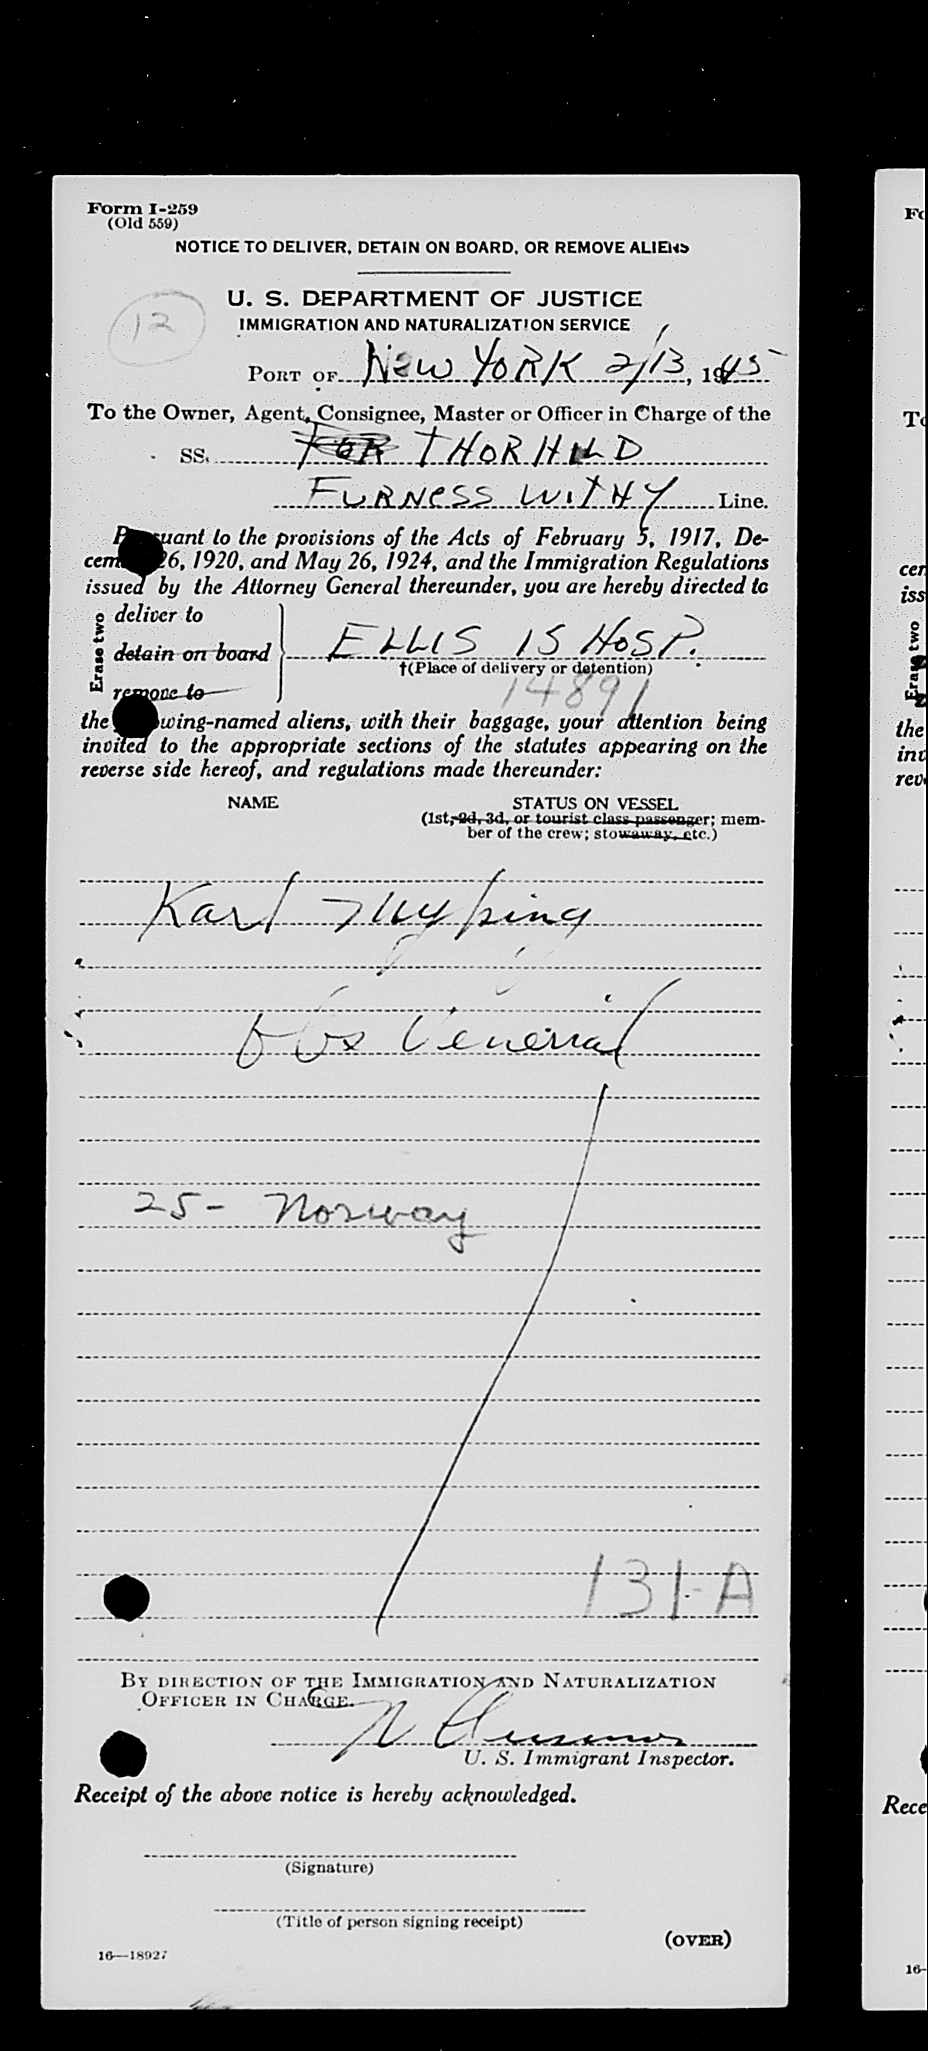 Form I-259
(Old 559)
NOTICE TO DELIVER, DETAIN ON BOARD, OR REMOVE ALIENS
12
U. S. DEPARTMENT OF JUSTICE
IMMIGRATION AND NATURALIZATION SERVICE
PORT OF NEW YORK 2/13, 1945
To the Owner, Agent, Consignee, Master or Officer in Charge of the
SS. FOR THORHILD
FURNESS WITHY Line.
Pursuant to the provisions of the Acts of February 5, 1917, De-
cember 26, 1920, and May 26, 1924, and the Immigration Regulations
issued by the Attorney General thereunder, you are hereby directed to
Erase two
deliver to
detain on board
remove to
ELLIS IS HOSP.
†(Place of delivery or detention)
14891
the following-named aliens, with their baggage, your attention being
invited to the appropriate sections of the statutes appearing on the
reverse side hereof, and regulations made thereunder:
NAME
STATUS ON VESSEL
(1st, 2d, 3d, or tourist class passenger; mem-
ber of the crew; stowaway, etc.)
Karl
Obs Venerial
25- Norway
131-A
BY DIRECTION OF THE IMMIGRATION AND NATURALIZATION
OFFICER IN CHARGE.
U. S. Immigrant Inspector.
Receipt of the above notice is hereby acknowledged.
(Signature)
(Title of person signing receipt)
(OVER)
16—18927
Fo
To
cer
iss
Erase two
the
inv
reve
Rece
16-